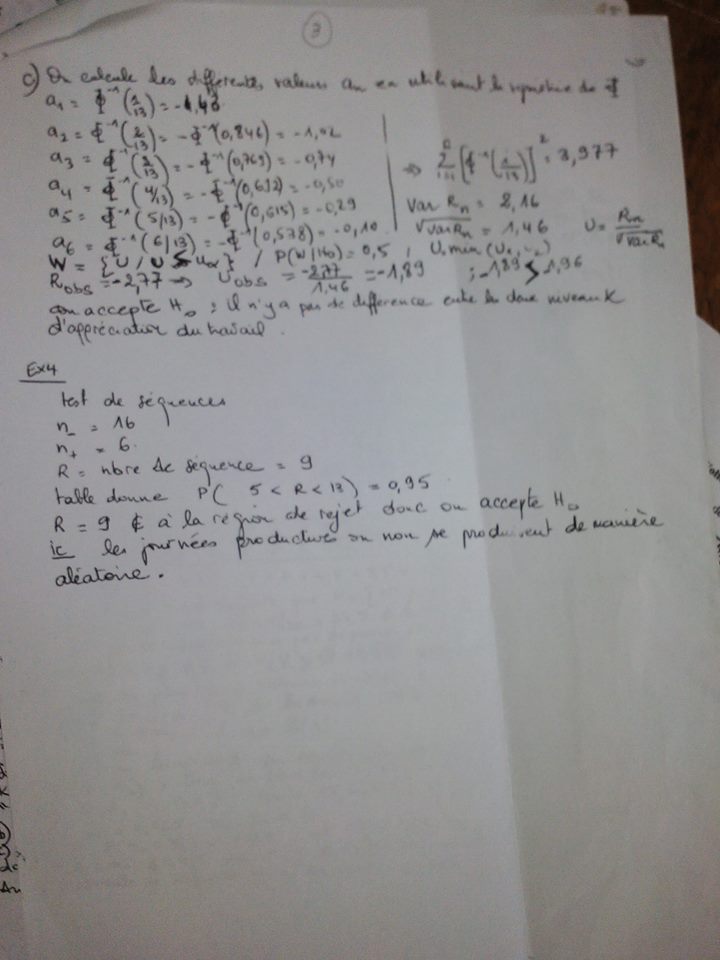 3
c) On calcule les différentes valeurs an en utilisant la symétrie de Φ
a1 = Φ⁻¹(1/13) = -1,43
a2 = Φ⁻¹(2/13) = -Φ⁻¹(0,846) = -1,02
a3 = Φ⁻¹(3/13) = -Φ⁻¹(0,769) = -0,74
a4 = Φ⁻¹(4/13) = -Φ⁻¹(0,692) = -0,50
a5 = Φ⁻¹(5/13) = -Φ⁻¹(0,615) = -0,29
a6 = Φ⁻¹(6/13) = -Φ⁻¹(0,538) = -0,10
⇒ Σ [Φ⁻¹(i/13)]² = 3,977
Var Rn = 2,16
√Var Rn = 1,46 U = Rn/√Var Rn
W = {U / U ≤ uα} / P(W|H0) = 0,5 ; U = min(
Robs = -2,77 → Uobs = -2,77/1,46 = -1,89 ; -1,89 1,96
on accepte H0 : il n'y a pas de différence entre les deux niveaux
d'appréciation du travail.
Ex4
test de séquences
n- = 16
n+ = 6
R = nbre de séquence = 9
table donne P( 5 < R < 13) = 0,95
R = 9 ∉ à la région de rejet donc on accepte H0
ic les journées productives ou non se produisent de manière
aléatoire.